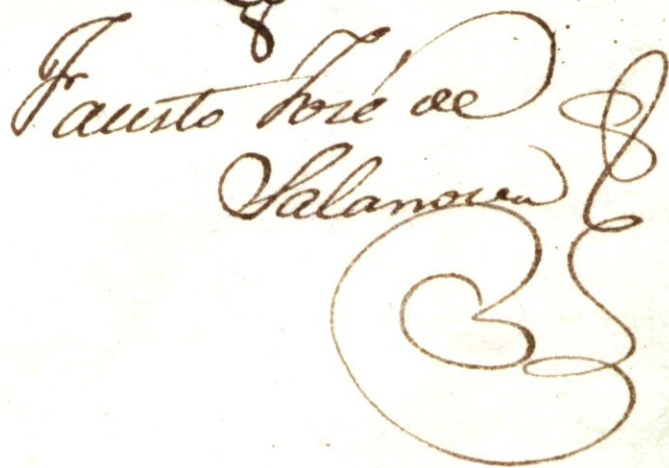 Fausto José de
Salanova